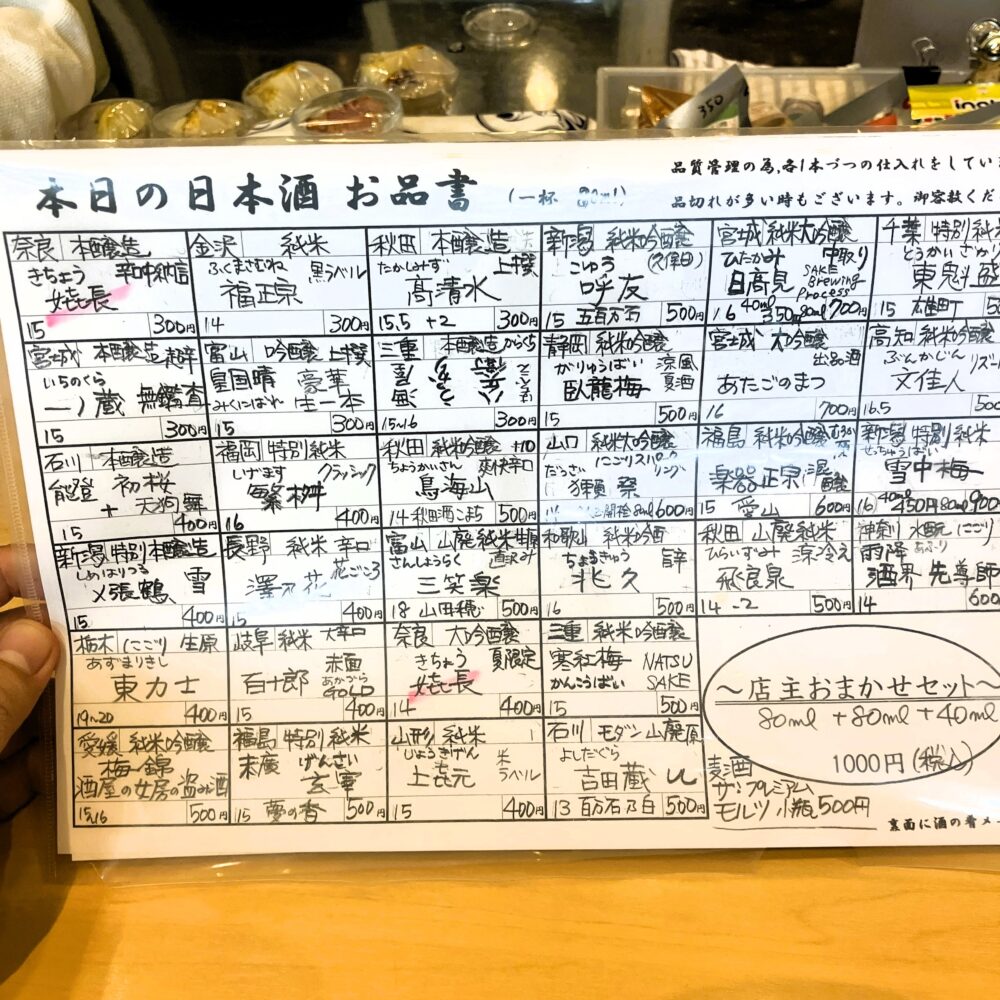 本日の日本酒 お品書 (一杯 80ml)
品質管理の為、各1本づつの仕入れをしてい
品切れが多い時もございます。御容赦くだ
奈良 本醸造
きちょう 辛中納言
嬉長
15 300円
金沢 純米
ふくまさむね 黒ラベル
福正宗
14 300円
秋田 本醸造
たかしみず 上撰
高清水
15.5 +2 300円
新潟 純米吟醸
こゆう (久保田)
呼友
15 五百万石 500円
宮城 純米大吟醸
ひたかみ 中取り
日高見 SAKE Brewing Process
16 40ml 350円 80ml 700円
千葉 特別純米
とうかいさかり
東魁盛
15 雄町
宮城 本醸造 超辛
いちのくら
一ノ蔵 無鑑査
15 300円
富山 吟醸 上撰
皇国晴 豪華
みくにはれ 生一本
15 300円
三重 本醸造 からくち
15~16 300円
静岡 純米吟醸
がりゅうばい 涼風
臥龍梅 夏酒
15 500円
宮城 大吟醸
出品酒
あたごのまつ
16 700円
高知 純米吟醸
ぶんかじん リズール
文佳人
16.5
石川 本醸造
能登 初桜
+ 天狗舞
15 400円
福岡 特別純米
しげます クラシック
繁桝
16 400円
秋田 純米吟醸 +10
ちょうかいさん 爽快辛口
鳥海山
14 秋田酒こまち 500円
山口 純米大吟醸
だっさい にごりスパークリング
獺祭
80ml 600円
福島 純米吟醸
楽器正宗 混醸
15 愛山 600円
新潟 特別純米
せっちゅうばい
雪中梅
16 40ml 450円 80ml 900
新潟 特別本醸造
しめはりつる
〆張鶴 雪
15 400円
長野 純米 辛口
澤乃花 花ごころ
15 400円
富山 山廃純米生原
さんしょうらく 直汲み
三笑楽
18 山田穂 500円
和歌山 純米吟酒
ちょうきゅう
兆久
16 500円
秋田 山廃純米
ひらいずみ 涼冷え
飛良泉
14 -2 500円
神奈川 水酛 にごり
雨降 あふり
酒界 先導師
14 600
栃木 にごり 生原
あずまりきし
東力士
19~20 400円
岐阜 純米 大辛口
百十郎 赤面
あかづら
GOLD
15 400円
奈良 大吟醸
きちょう 夏限定
嬉長
14 400円
三重 純米吟醸
寒紅梅 NATSU
かんこうばい SAKE
15 500円
~店主おまかせセット~
80ml +80ml +40ml
1000円(税込)
愛媛 純米吟醸
梅錦
酒屋の女房の盗み酒
15,16 500円
福島 特別 純米
末廣 げんさい
玄宰
15 夢の香 500円
山形 純米
じょうきげん 米
上㐂元 ラベル
15 400円
石川 モダン山廃原
よしだぐら
吉田蔵 u
13 百万石乃白 500円
麦酒
ザ・プレミアム
モルツ 小瓶 500円
裏面に酒の肴メ
350